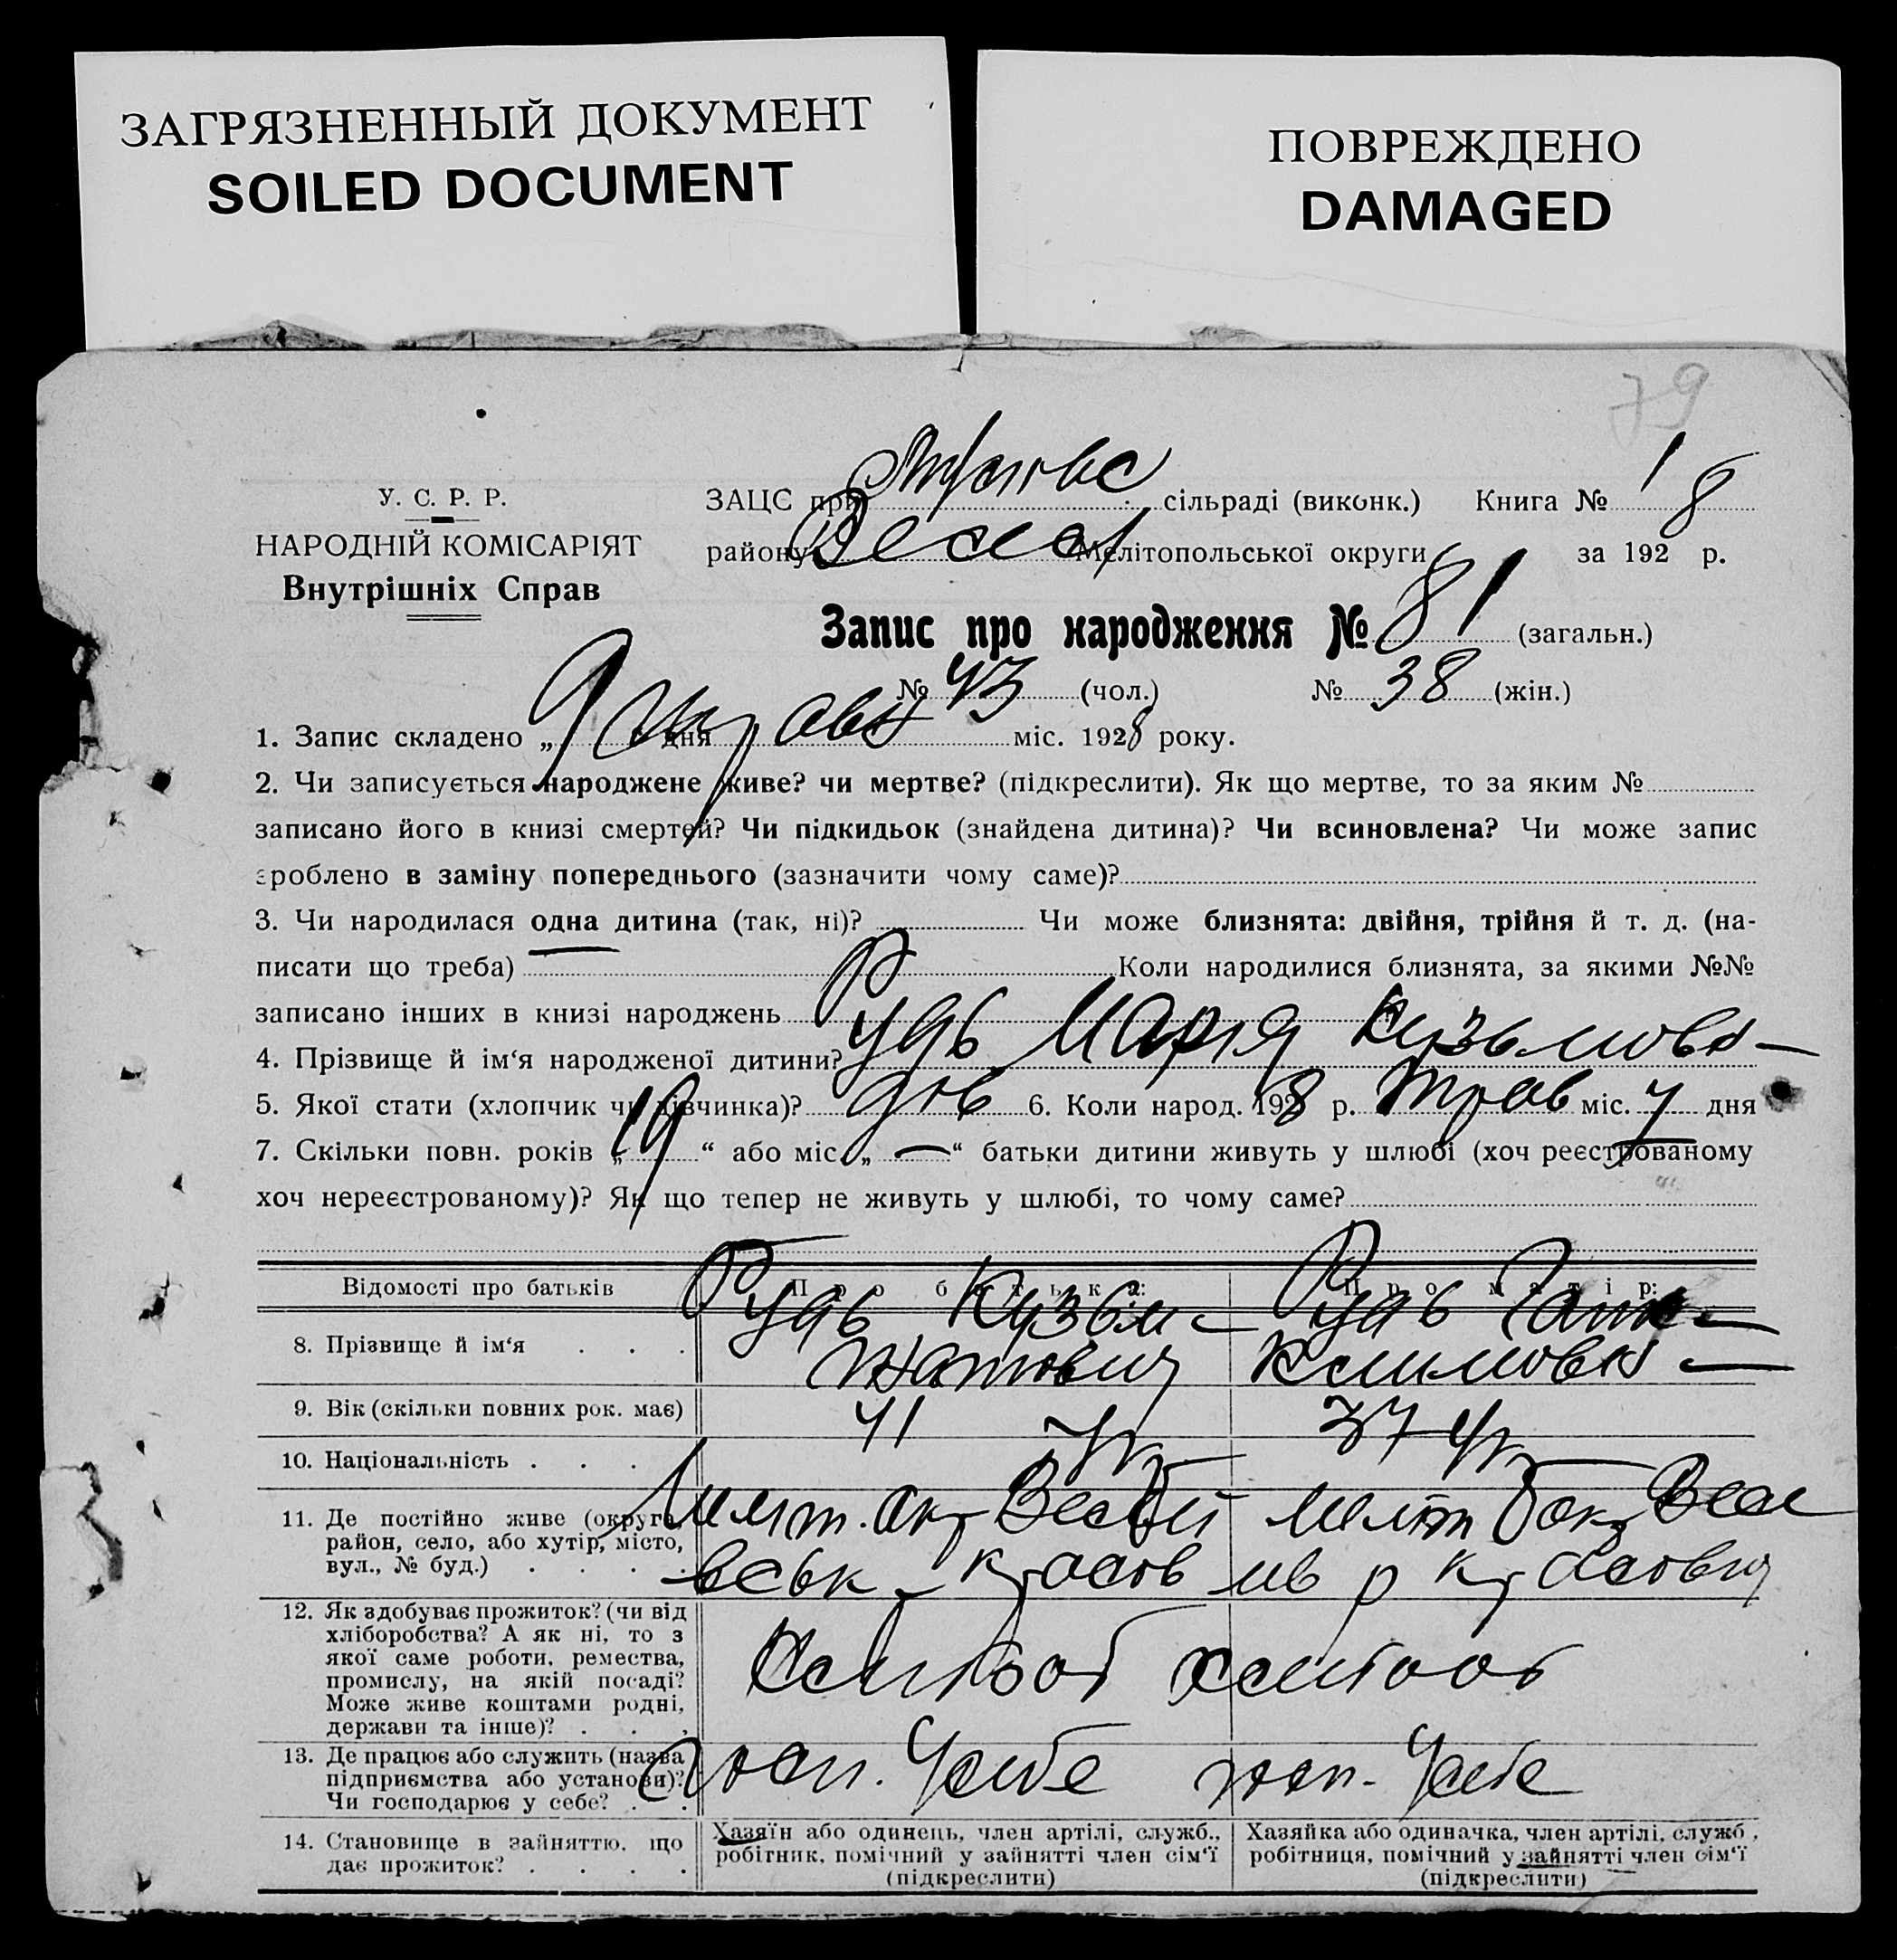 ЗАГРЯЗНЕННЫЙ ДОКУМЕНТ
SOILED DOCUMENT
ПОВРЕЖДЕНО
DAMAGED
79
У. С. Р. Р.
НАРОДНІЙ КОМІСАРІЯТ
Внутрішніх Справ
ЗАЦС при сільраді (виконк.) Книга № 1
району Весел Мелітопольської округи за 1928 р.
Запис про народження № 81 (загальн.)
№ 43 (чол.) № 38 (жін.)
1. Запис складено „ 9 дня травн міс. 1928 року.
2. Чи записується народжене живе? чи мертве? (підкреслити). Як що мертве, то за яким №
записано його в книзі смертей? Чи підкидьок (знайдена дитина)? Чи всиновлена? Чи може запис
зроблено в заміну попереднього (зазначити чому саме)?
3. Чи народилася одна дитина (так, ні)? Чи може близнята: двійня, трійня й т. д. (на-
писати що треба) Коли народилися близнята, за якими №№
записано інших в книзі народжень
4. Прізвище й ім‘я народженої дитини? Рудь Марія Кузьмовн
5. Якої стати (хлопчик чи дівчинка)? дів 6. Коли народ. 1928 р. Трав міс. 7 дня
7. Скільки повн. років „ 19 “ або міс. „ — “ батьки дитини живуть у шлюбі (хоч реєстрованому
хоч нереєстрованому)? Як що тепер не живуть у шлюбі, то чому саме?
Відомості про батьків Про батька: Про матір:
8. Прізвище й ім‘я . . . Рудь Кузьм Рудь Ганн
Климовн
9. Вік (скільки повних рок. має) 41 37
10. Національність . . . Ук Ук
11. Де постійно живе (округа,
район, село, або хутір, місто,
вул., № буд.) . . . .
12. Як здобуває прожиток? (чи від
хліборобства? А як ні, то з
якої саме роботи, ремества,
промислу, на якій посаді?
Може живе коштами родні,
держави та інше)? . . . Хлібороб хлібороб
13. Де працює або служить (назва
підприємства або установи)?
Чи господарює у себе? . . госп. У себе госп. У себе
14. Становище в зайняттю, що
дає прожиток? . . . .
Хазяїн або одинець, член артілі, служб.,
робітник, помічний у зайнятті член сім‘ї
(підкреслити)
Хазяйка або одиначка, член артілі, служб.,
робітниця, помічний у зайнятті член сім‘ї
(підкреслити)